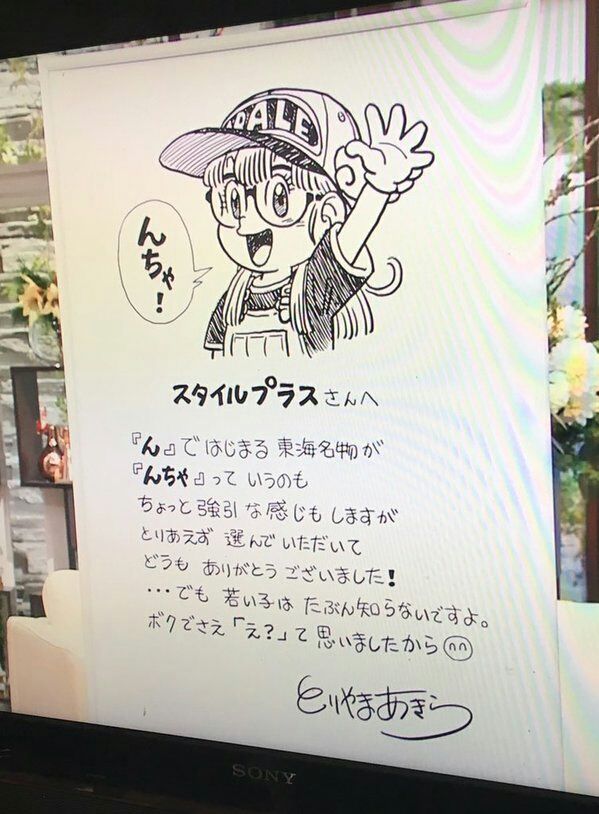 DALE
んちゃ!
スタイルプラスさんへ
『ん』ではじまる 東海名物が
『んちゃ』って いうのも
ちょっと 強引な 感じも しますが
とりあえず 選んで いただいて
どうも ありがとう ございました!
・・・でも 若い子は たぶん知らないですよ。
ボクでさえ「え?」て 思いましたから
とりやまあきら
SONY